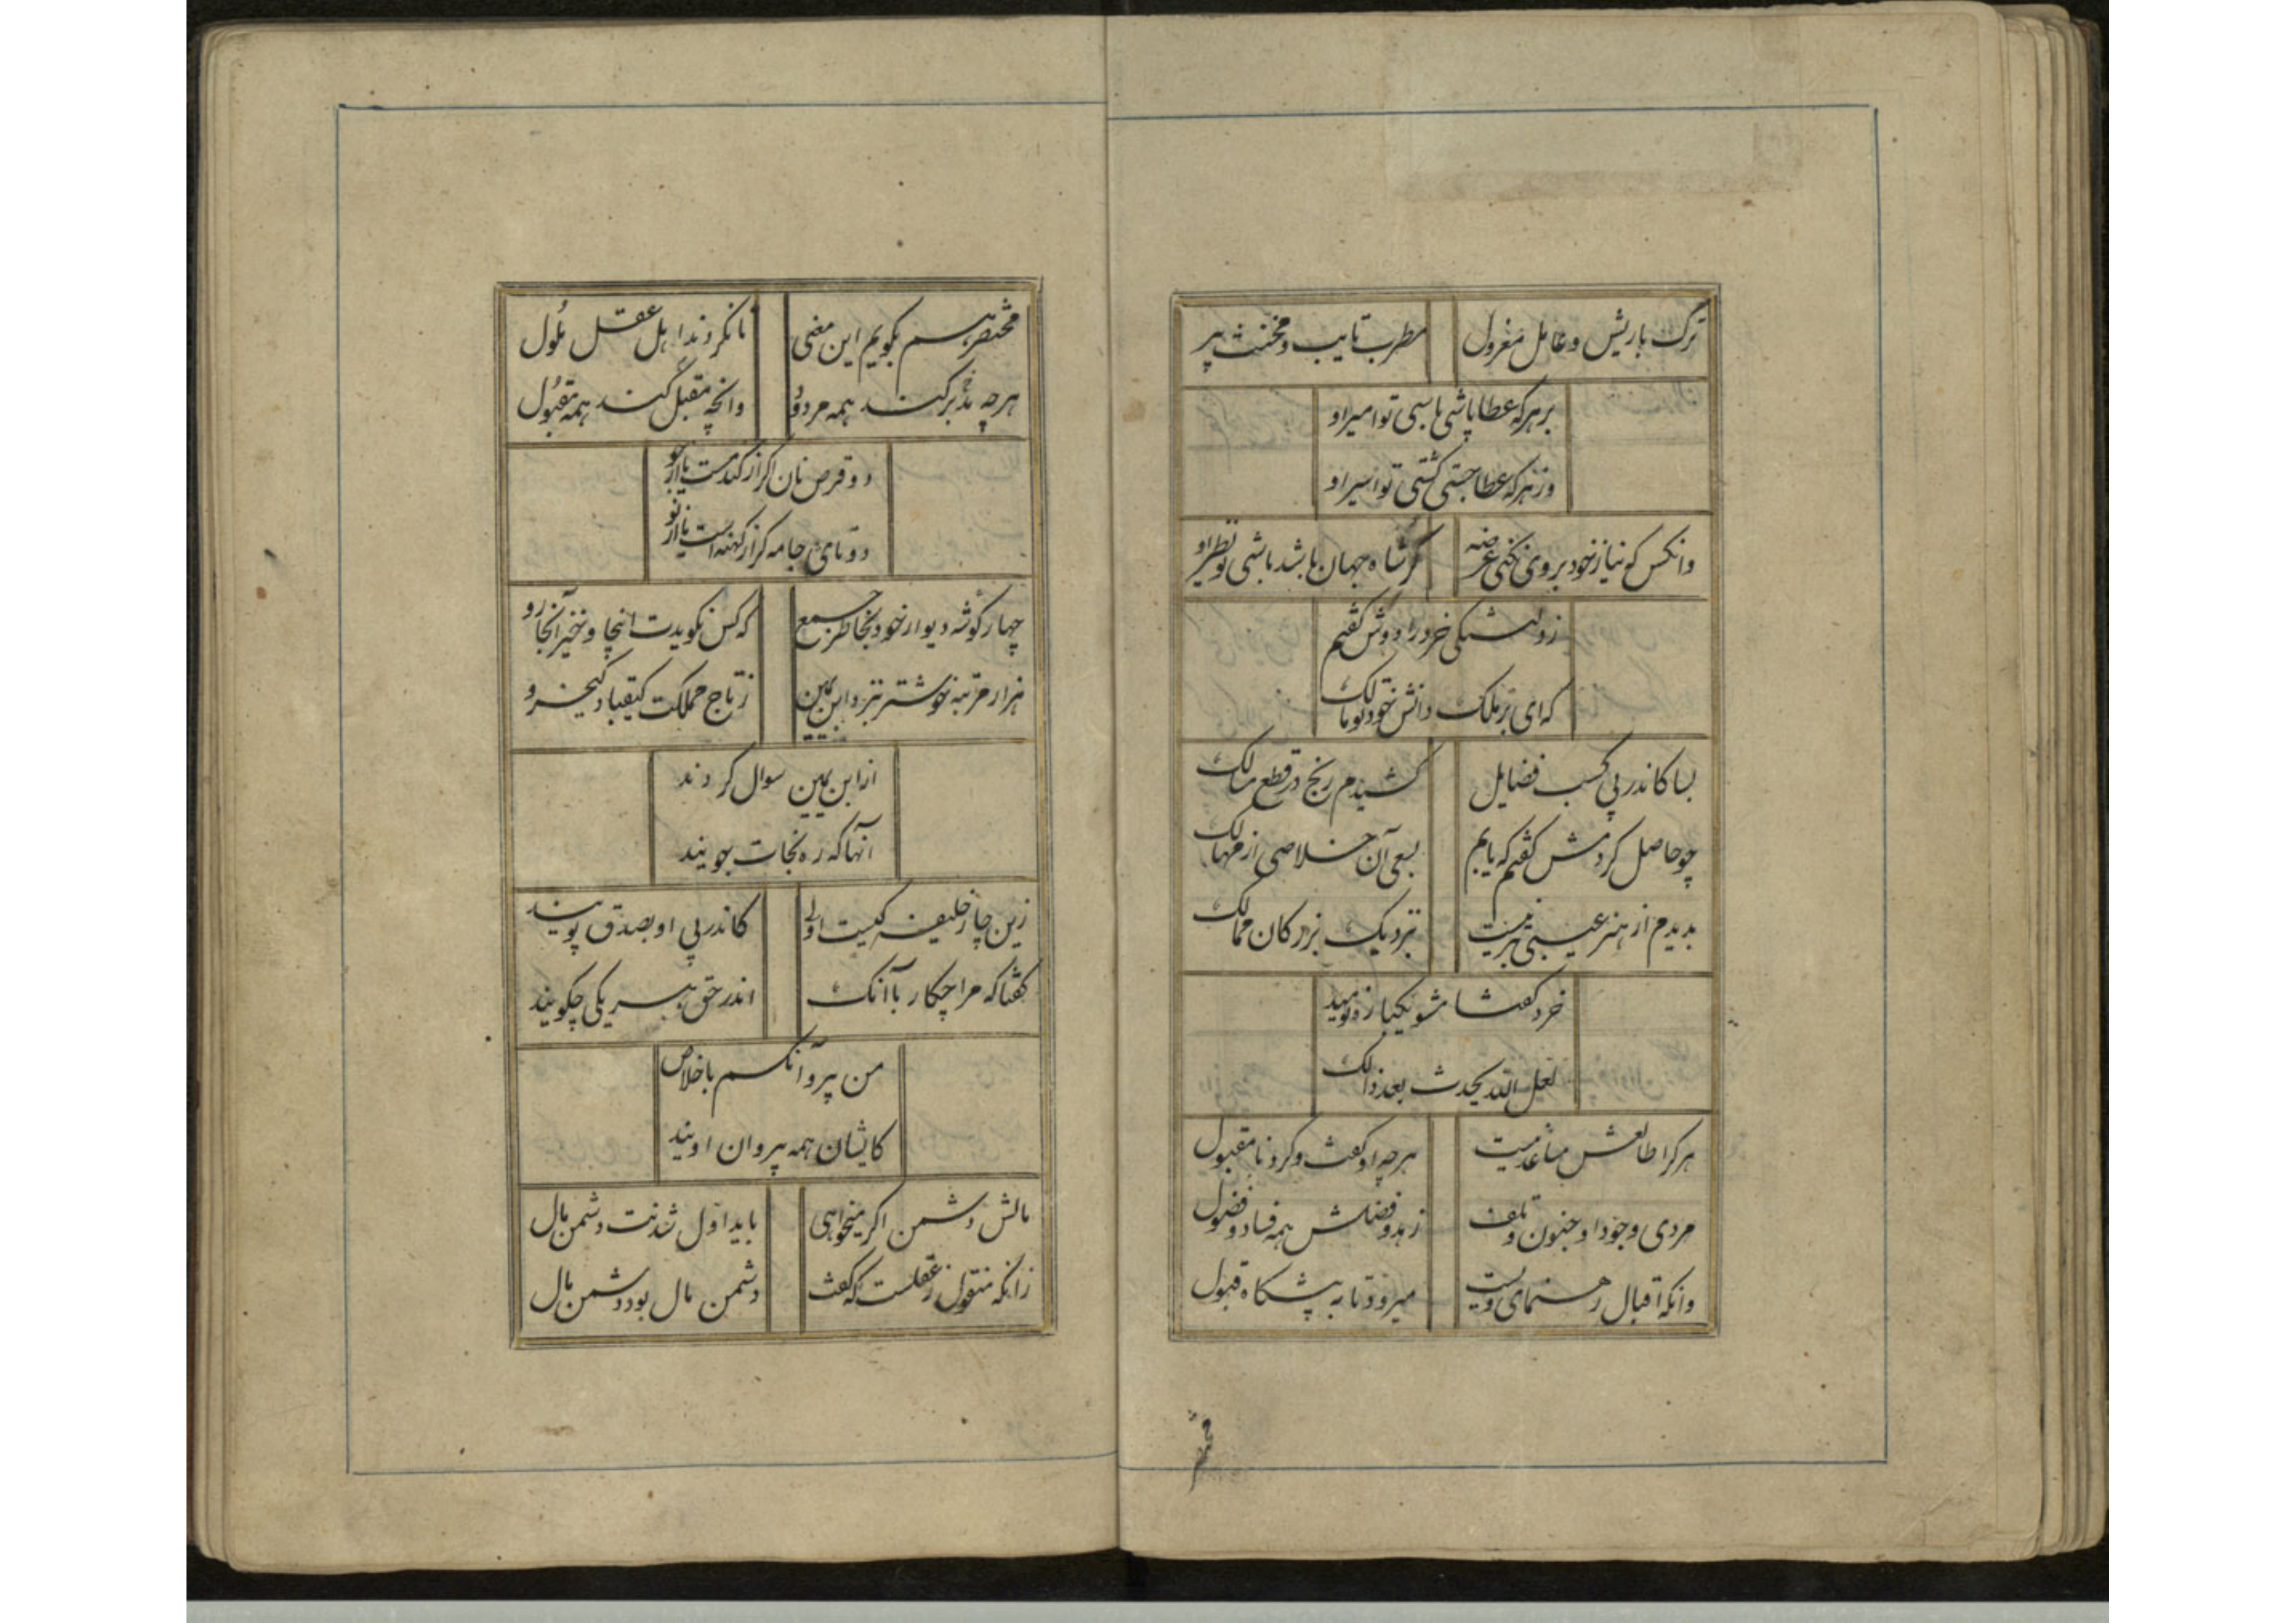 ترک باریش و عامل معزول مطرب تایب و مخنث پیر
برهرکه عطا پاشی باشی تو امیر او
وز هرکه عطا جستی گشتی تو اسیر او
وانکس که نیاز خود بر وی نکنی عرضه گر شاه جهان باشد باشی تو نظیر او
ز دلتنگی خرد را دوش گفتم
که ای بر ملک دانش خود تو مالک
بسا کاندر پی کسب فضایل کشیدم رنج در قطع مسالک
چو حاصل کردمش گفتم که یابم بسعی آن خلاصی از مهالک
بدیدم از هنر عیبی بتر نیست بنزدیک بزرکان ممالک
خرد گفتا مشو یکباره نومید
لعل الله یحدث بعد ذالک
هرکرا طالعش مساعد نیست هرچه او گفت و کرد نامقبول
مردی وجود او جنون و تلف زهد و فضلش همه فساد و فضول
وانکه اقبال رهنمای ویست میرود تا به پیشگاه قبول
مختصر
مختصر هم بکویم این معنی تا نکردند اهل عقل ملول
هرچه مدبر کند همه مردود وانچه مقبل کند همه مقبول
دو قرص نان اگر از گندمست یا از جو
دو تای جامه گر از کهنه است یا از نو
چهار گوشه دیوار خود بخاطر جمع که کس نکویدت اینجا و خیز آنجا رو
هزار مرتبه خوشتر بنزد ابن یمین ز تاج مملکت کیقباد و کیخسرو
از ابن یمین سوال کردند
آنها که ره نجات جویند
زین چار خلیفه کیست اولی کاندر پی او بصدق پویند
گفتا که مرا چکار با آنک اندر حق هر یکی چکویند
من پیرو آنکسم باخلاص
کایشان همه پیروان اویند
مالش دشمن اگر میخواهی باید اول شدنت دشمن مال
زانکه منقول ز عقلست که گفت دشمن مال بود دشمن مال